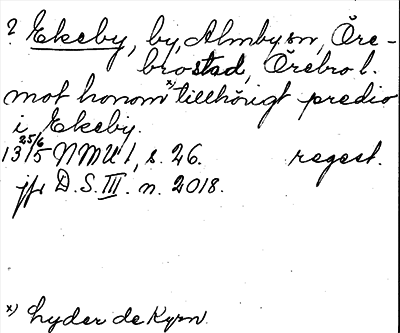 ? Ekeby, by, Almby sn, Öre-
brostad, Örebro l.
mot honom x) tillhörigt predio
i Ekeby.
13 25/6 15 NMU 1, s. 26. regest.
jfr D.S. III. n. 2018.
x) Lyder de Kyrn.